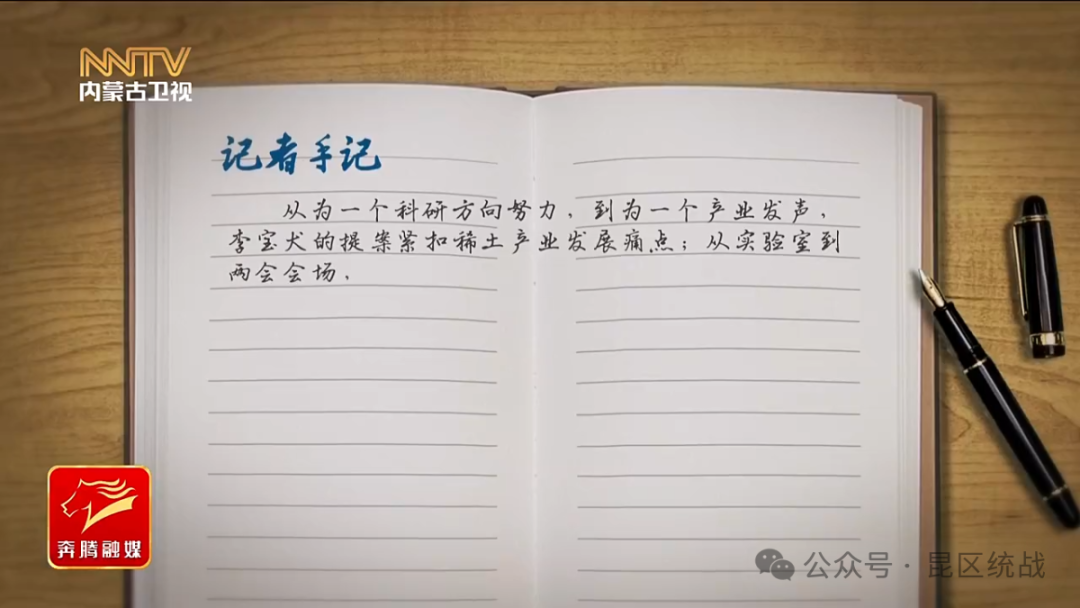 NNTV
内蒙古卫视
记者手记
从为一个科研方向努力，到为一个产业发声，
李宝犬的提案紧扣稀土产业发展痛点；从实验室到
两会会场，
奔腾融媒
公众号·昆区统战